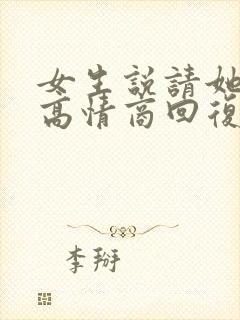 女生説請她
高情商回復
李掰